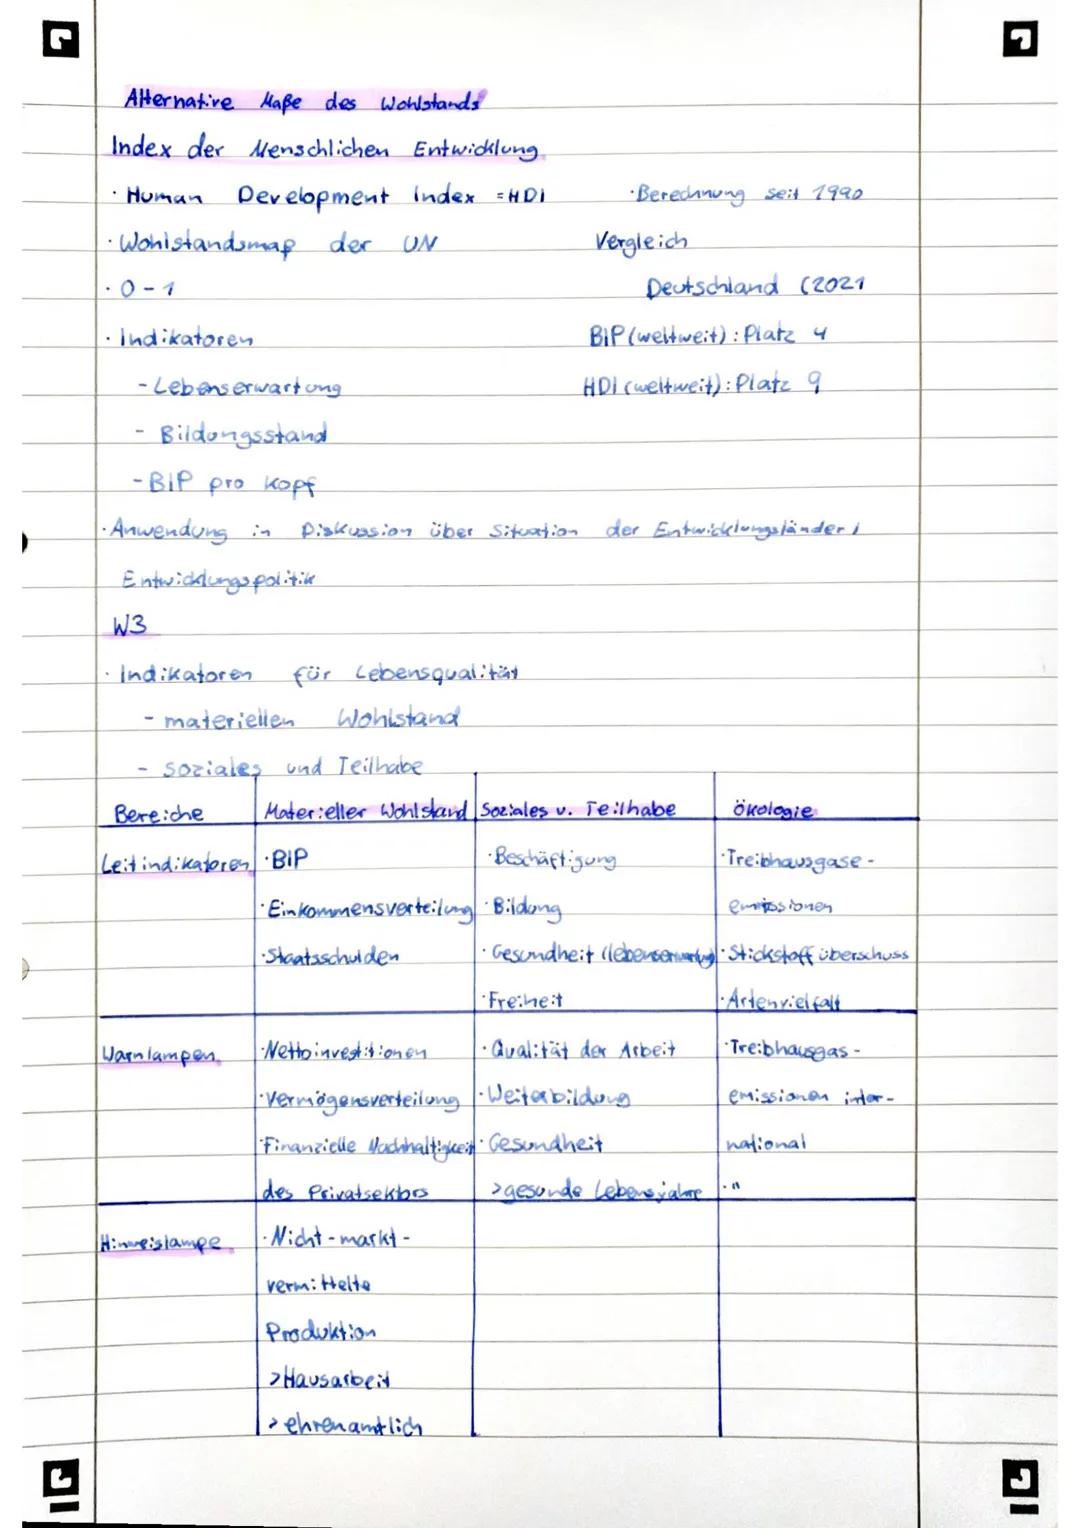 Alternative Maße des Wohlstands
Index der Menschlichen Entwicklung
· Human Development Index = HDI
· Berechnung seit 1990
· Wohlstandsmaß der UN
Vergleich
· 0 - 1
Deutschland (2021
· Indikatoren
BIP (weltweit): Platz 4
- Lebenserwartung
HDI (weltweit): Platz 9
- Bildungsstand
- BIP pro Kopf
· Anwendung in Diskussion über Situation der Entwicklungsländer /
Entwicklungspolitik
W3
· Indikatoren für Lebensqualität
- materiellen Wohlstand
- soziales und Teilhabe
Bereiche | Materieller Wohlstand | Soziales u. Teilhabe | Ökologie
Leitindikatoren | · BIP | · Beschäftigung | · Treibhausgase-
· Einkommensverteilung | · Bildung | emissionen
· Staatsschulden | · Gesundheit (Lebenserwartung) | · Stickstoffüberschuss
· Freiheit | · Artenvielfalt
Warnlampen | · Nettoinvestitionen | · Qualität der Arbeit | · Treibhausgas-
· Vermögensverteilung | · Weiterbildung | emissionen inter-
· Finanzielle Nachhaltigkeit | · Gesundheit | national
des Privatsektors | > gesunde Lebensjahre | · "
Hinweislampe | · Nicht-markt-
vermittelte
Produktion
> Hausarbeit
> ehrenamtlich